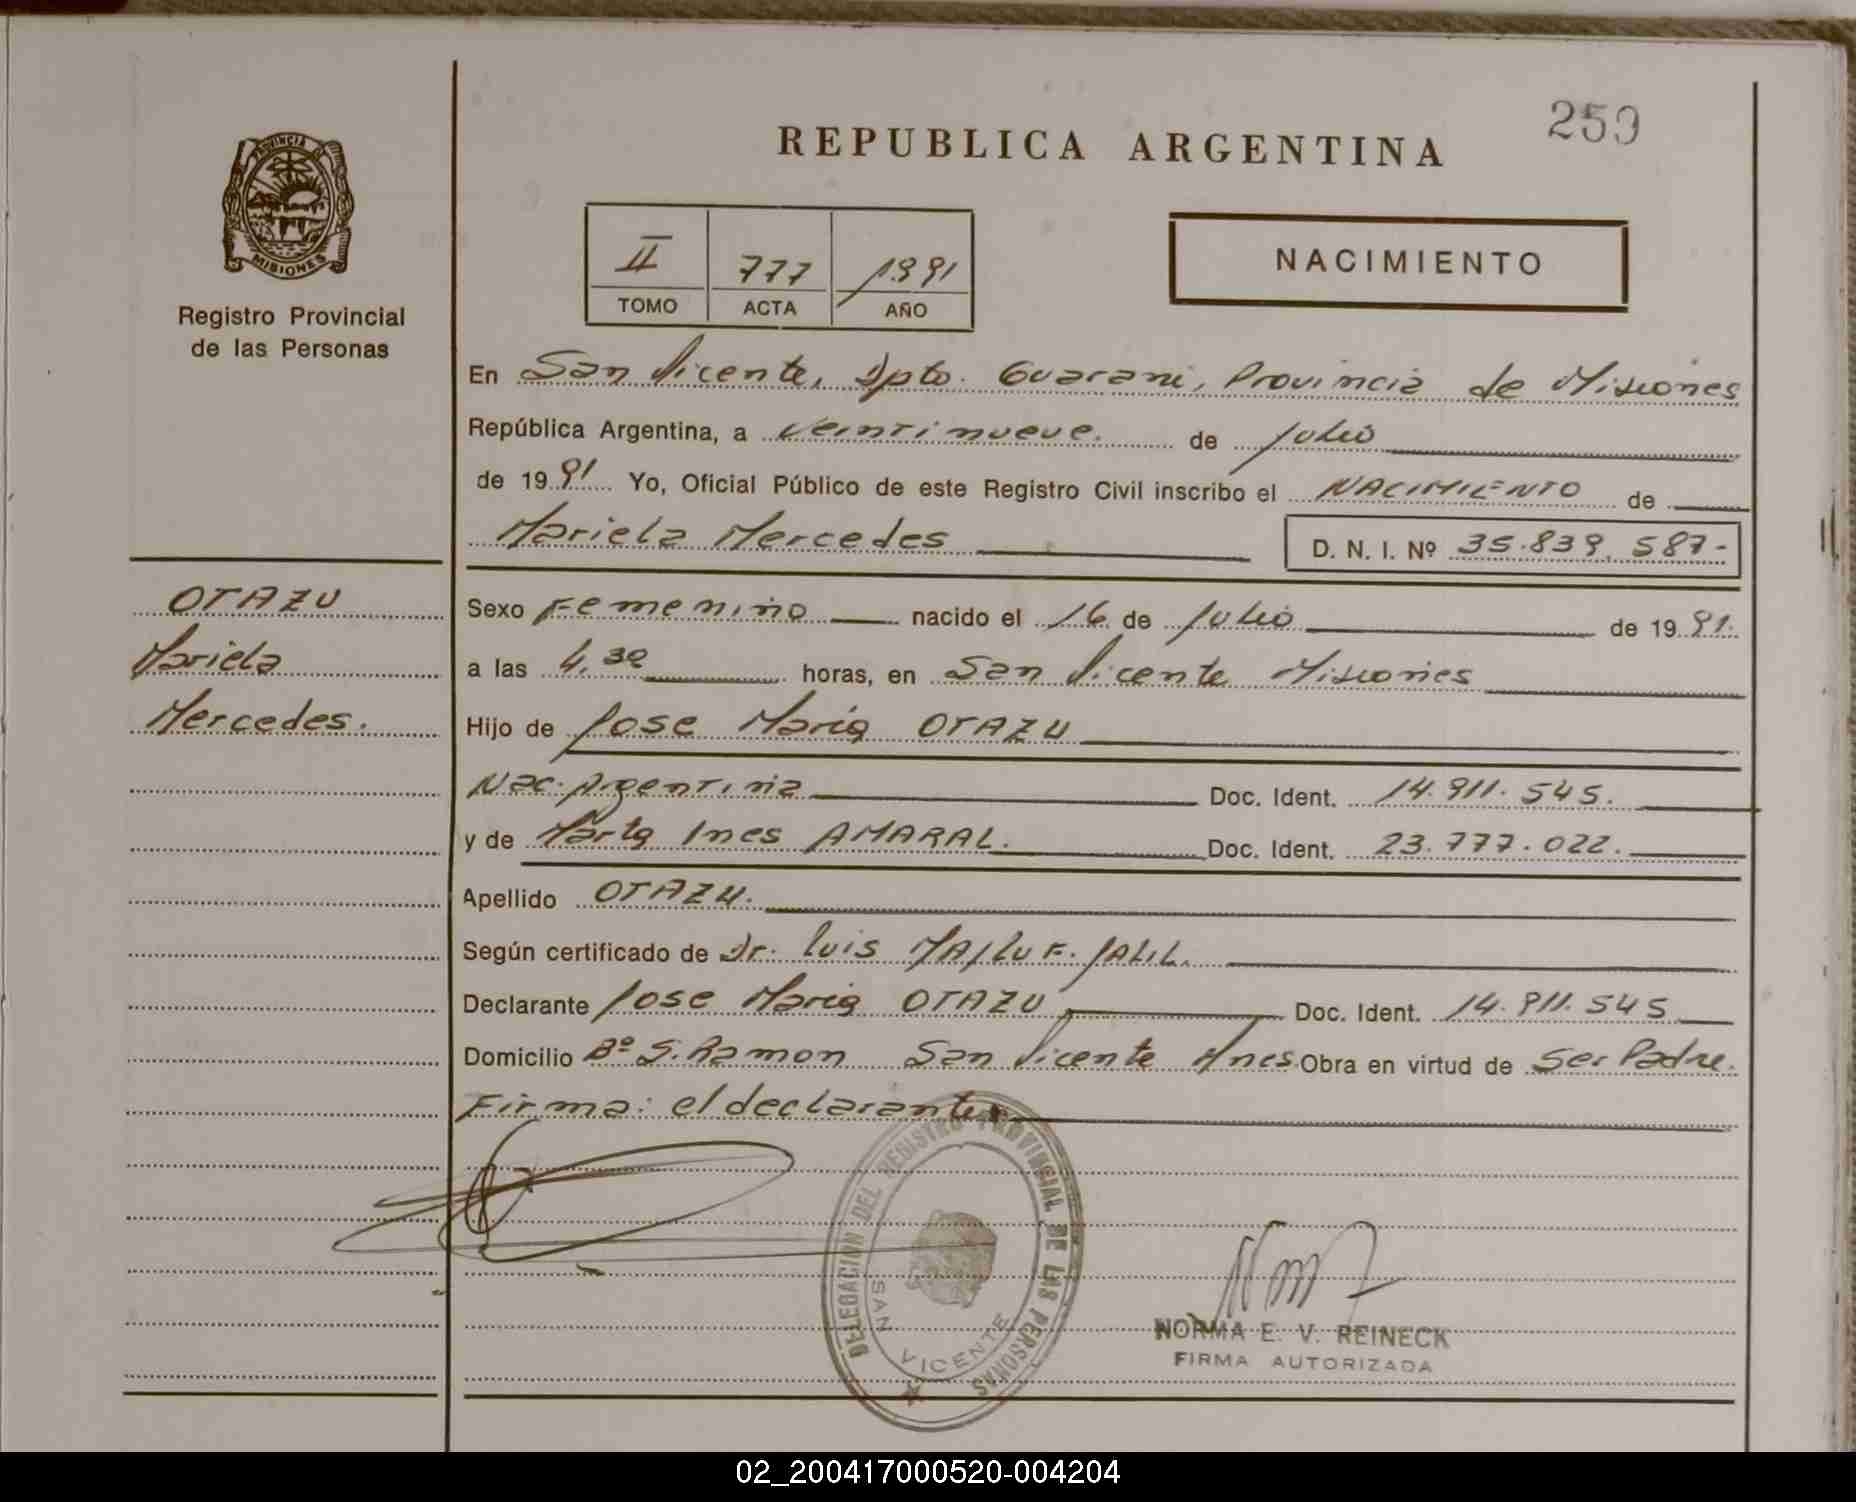 259
REPUBLICA ARGENTINA
PROVINCIA DE
MISIONES
Registro Provincial
de las Personas
II 777 1991
TOMO ACTA AÑO
NACIMIENTO
En San Vicente, Dpto. Guarani, Provincia de Misiones
República Argentina, a veintinueve. de Julio
de 1991 Yo, Oficial Público de este Registro Civil inscribo el NACIMIENTO de
Mariela Mercedes D. N. I. Nº 35.839.587-
OTAZU
Mariela
Mercedes.
Sexo Femenino nacido el 16 de Julio de 1991.
a las 4,30 horas, en San Vicente Misiones
Hijo de Jose Maria OTAZU
Nac. Argentina Doc. Ident. 14.911.545.
y de Marta Ines AMARAL. Doc. Ident. 23.777.022.
Apellido OTAZU.
Según certificado de Dr. Luis MAJLUF. JALIL.
Declarante Jose Maria OTAZU Doc. Ident. 14.911.545
Domicilio Bº S. Ramon San Vicente Mnes. Obra en virtud de Ser Padre.
Firma: el declarante
DELEGACION DEL REGISTRO PROVINCIAL DE LAS PERSONAS
SAN VICENTE
NORMA E. V. REINECK
FIRMA AUTORIZADA
02_200417000520-004204